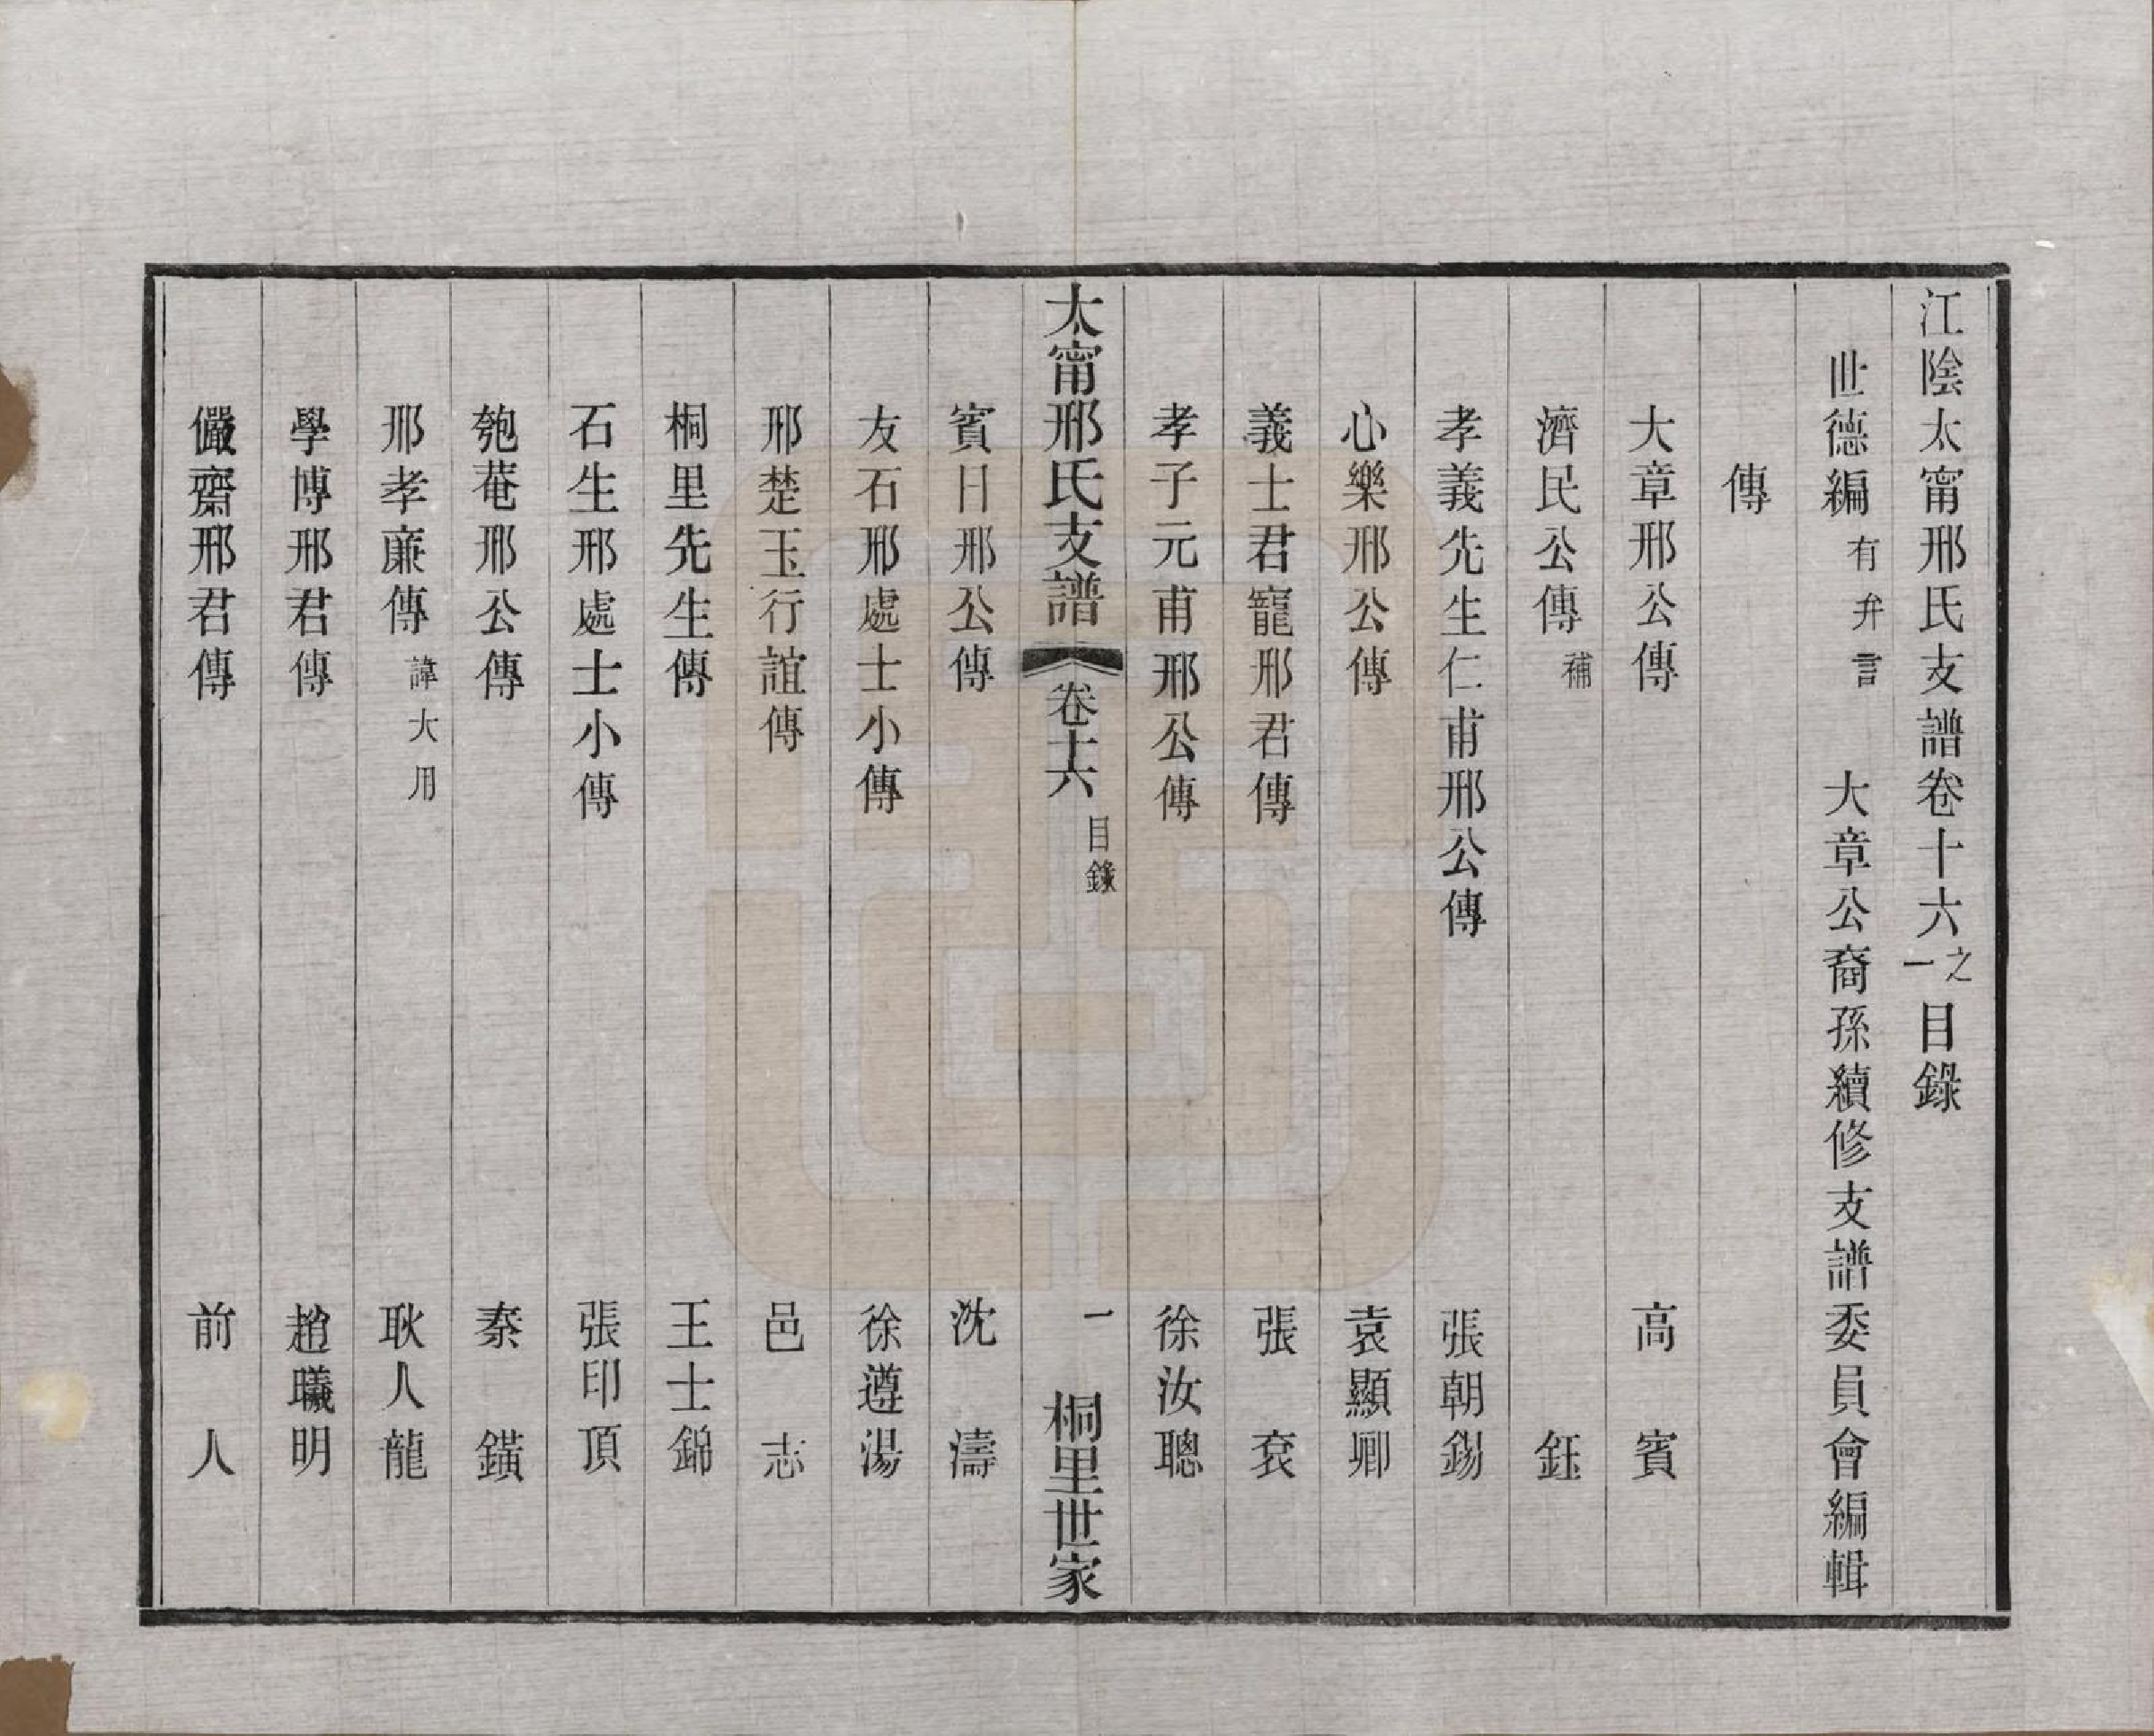 江陰太甯邢氏支譜卷十六之一目錄
世德編有弁言　大章公裔孫續修支譜委員會編輯
傳
大章邢公傳　高賓
濟民公傳補　鈺
孝義先生仁甫邢公傳　張朝錫
心樂邢公傳　袁顯卿
義士君寵邢君傳　張袞
孝子元甫邢公傳　徐汝聰
太甯邢氏支譜　卷十六　目錄　一　桐里世家
賓日邢公傳　沈濤
友石邢處士小傳　徐遵湯
邢楚玉行誼傳　邑志
桐里先生傳　王士錦
石生邢處士小傳　張印頂
匏菴邢公傳　秦鐄
邢孝廉傳諱大用　耿人龍
學博邢君傳　趙曦明
儼齋邢君傳　前人